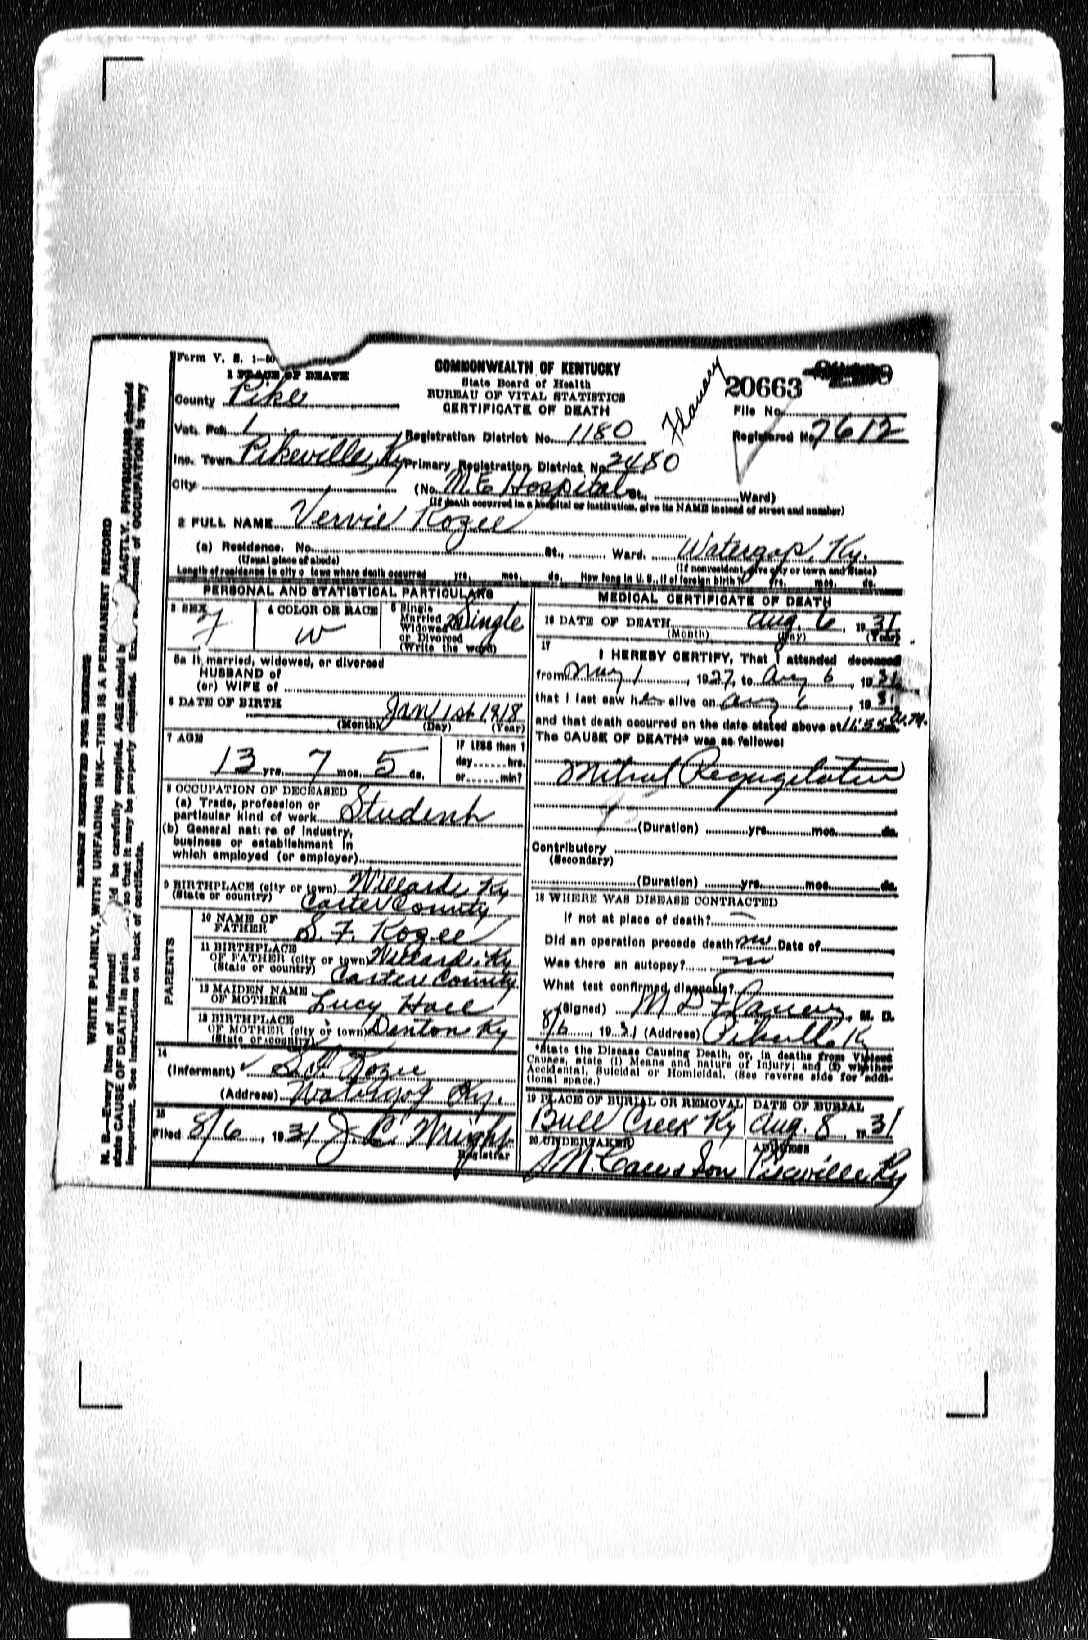 Form V. S. 1-
1 PLACE OF DEATH
County Pike
Vot. Pct. 1
Inc. Town Pikeville, Ky
City
COMMONWEALTH OF KENTUCKY
State Board of Health
BUREAU OF VITAL STATISTICS
CERTIFICATE OF DEATH
Flanary
20663
File No.
Registered No. 7612
Registration District No. 1180
Primary Registration District No. 2480
(No. M. E. Hospital St., Ward)
(If death occurred in a hospital or institution, give its NAME instead of street and number)
2 FULL NAME Vervie Kozee
(a) Residence. No. St., Ward. Watergap, Ky.
(Usual place of abode) (If nonresident, give city or town and State)
Length of residence in city or town where death occurred yrs. mos. ds. How long in U. S., if of foreign birth? yrs. mos. ds.
PERSONAL AND STATISTICAL PARTICULARS
3 SEX F
4 COLOR OR RACE W
5 Single Married Widowed or Divorced (Write the word) Single
5a If married, widowed, or divorced
HUSBAND of
(or) WIFE of
6 DATE OF BIRTH Jan 1st 1918
(Month) (Day) (Year)
7 AGE
13 yrs. 7 mos. 5 ds.
IF LESS than 1
day hrs.
or min?
8 OCCUPATION OF DECEASED
(a) Trade, profession or
particular kind of work Student
(b) General nature of industry,
business or establishment in
which employed (or employer)
9 BIRTHPLACE (city or town) Willard, Ky
(State or country) Carter County
PARENTS
10 NAME OF
FATHER S. F. Kozee
11 BIRTHPLACE
OF FATHER (city or town) Willard, Ky
(State or country) Carter County
12 MAIDEN NAME
OF MOTHER Lucy Hall
13 BIRTHPLACE
OF MOTHER (city or town) Denton Ky
(State or country)
14
(Informant) S. F. Kozee
(Address) Watergap Ky.
15
Filed 8/6, 1931 J. C. Wright
Registrar
MEDICAL CERTIFICATE OF DEATH
16 DATE OF DEATH Aug. 6, 1931
(Month) (Day) (Year)
17
I HEREBY CERTIFY, That I attended deceased
from May 1, 1927, to Aug 6, 1931
that I last saw her alive on Aug 6, 1931
and that death occurred on the date stated above at 11:55 a.m.
The CAUSE OF DEATH* was as follows:
Mitral Regurgitation
(Duration) yrs. mos. ds.
Contributory
(Secondary)
(Duration) yrs. mos. ds.
18 WHERE WAS DISEASE CONTRACTED
if not at place of death?
Did an operation precede death? no Date of
Was there an autopsy? no
What test confirmed diagnosis?
(Signed) M D Flanary, M. D.
8/6 1931 (Address) Pikeville Ky
*State the Disease Causing Death, or, in deaths from Violent
Causes, state (1) Means and nature of Injury; and (2) whether
Accidental, Suicidal or Homicidal. (See reverse side for addi-
tional space.)
19 PLACE OF BURIAL OR REMOVAL
Bull Creek Ky
DATE OF BURIAL
Aug. 8, 1931
20 UNDERTAKER
J. M. Call & Son
ADDRESS
Pikeville Ky
MARGIN RESERVED FOR BINDING
WRITE PLAINLY, WITH UNFADING INK—THIS IS A PERMANENT RECORD
N. B.—Every item of be carefully supplied. AGE should b EXACTLY. PHYSICIANS should
state CAUSE OF DEATH in plain so that it may be properly classified. of OCCUPATION is very
important. See instructions on back of certificate.